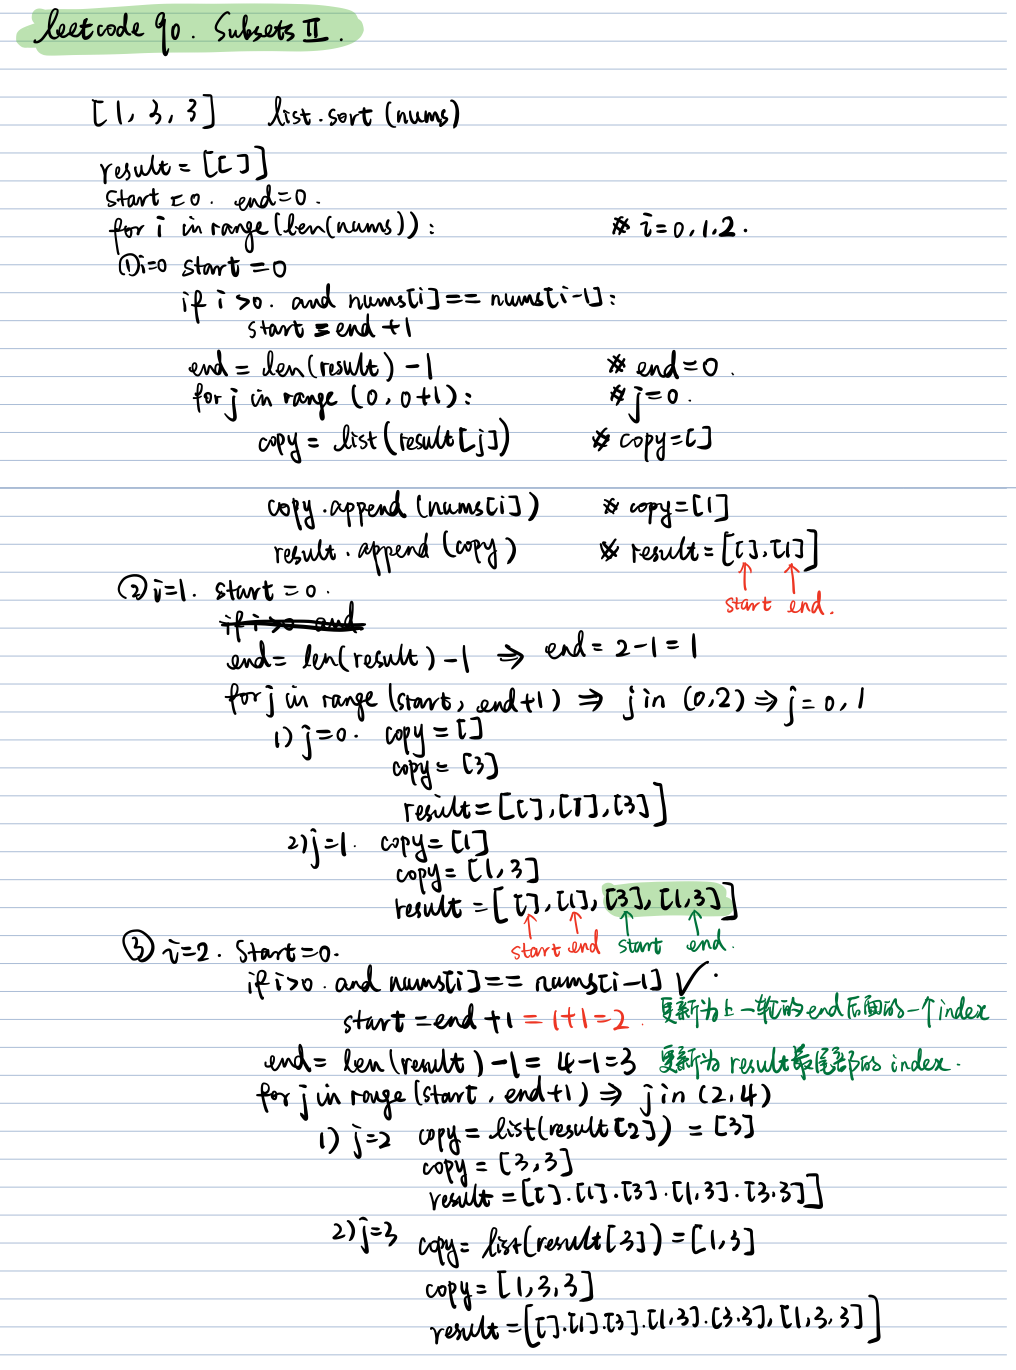 leetcode 90. Subsets II.
[1, 3, 3] list.sort (nums)
result = [[]]
start = 0. end = 0.
for i in range (len(nums)): # i=0,1,2.
① i=0 start = 0
if i > 0. and nums[i] == nums[i-1]:
start = end + 1
end = len(result) - 1 # end = 0.
for j in range (0, 0+1): # j=0.
copy = list(result[j]) # copy=[]
copy.append (nums[i]) # copy=[1]
result.append (copy) # result = [[],[1]]
start end.
② i=1. start = 0.
if i>0 and
end = len(result) - 1 ⇒ end = 2-1 = 1
for j in range (start, end+1) ⇒ j in (0,2) ⇒ j = 0, 1
1) j=0. copy = []
copy = [3]
result = [[],[1],[3]]
2) j=1. copy = [1]
copy = [1,3]
result = [[],[1],[3],[1,3]]
start end start end.
③ i=2. Start=0.
if i>0. and nums[i] == nums[i-1] ✓.
start = end + 1 = 1+1=2. 更新为上一轮的end后面的一个index
end = len(result) - 1 = 4-1=3 更新为result最尾部的index.
for j in range (start, end+1) ⇒ j in (2,4)
1) j=2 copy = list(result[2]) = [3]
copy = [3,3]
result = [[].[1].[3].[1,3].[3.3]]
2) j=3 copy = list(result[3]) = [1,3]
copy = [1,3,3]
result = [[].[1].[3].[1,3].[3.3],[1,3,3]]